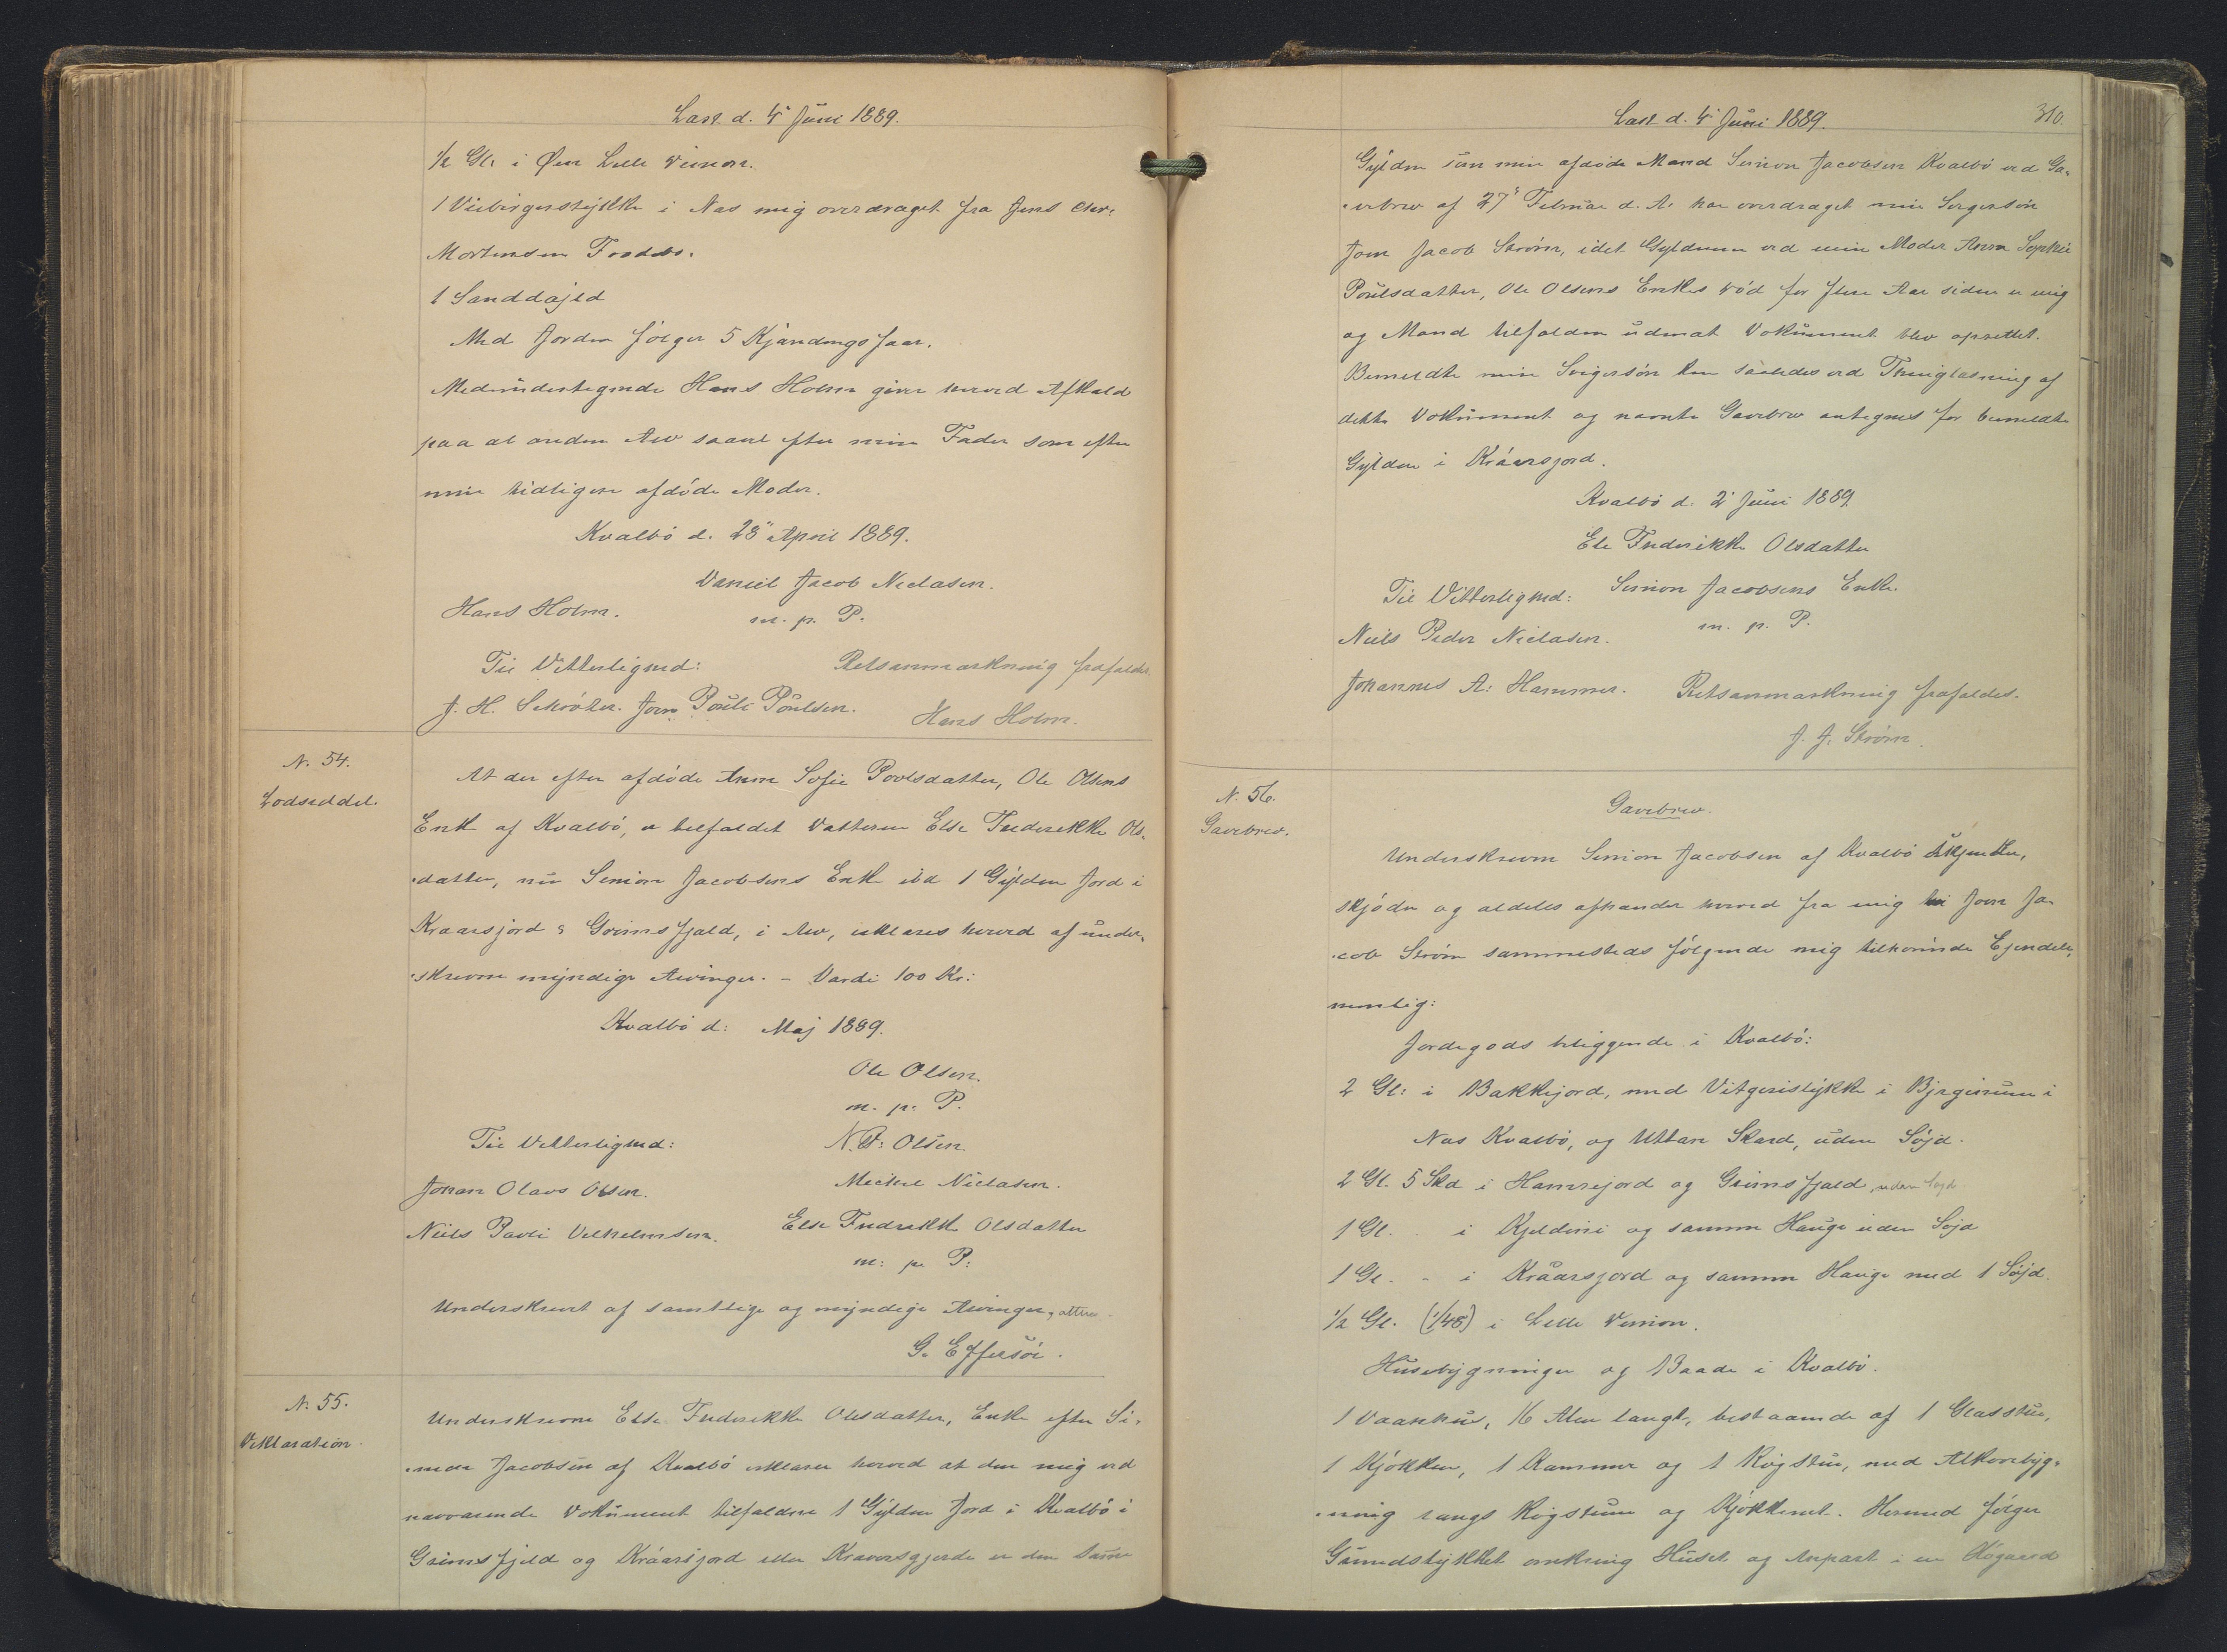 Læst d. 4' Juni 1889.
1/2 Gl. i Øen Lille Dimon.
1 Viebirgerstykke i Næs mig overdraget fra Jens Chr.
Mortensen
1 Sanddajld
Med Jorden følger 5 Kjændings Faar.
Medundertegnede Hans Holm giver herved Afkald
paa al anden Arv saavel efter min Fader som efter
min tidligere afdøde Moder.
Kvalbø d. 28" April 1889.
Daniel Jacob Niclasen.
Hans Holm.
m. p. P.
Til Vitterlighed:
Retsanmærkning frafaldes.
J. H. Schrøter. Joen Pouli Poulsen.
Hans Holm.
N. 54.
Lodseddel.
At der efter afdøde Anna Sofie Povlsdatter, Ole Olsens
Enke af Kvalbø, er tilfaldet Datteren Else Frederikke Ols-
datter, nu Simon Jacobsens Enke ibd 1 Gylden Jord i
Kraarsjord & Grims fjæld, i Arv, erklæres herved af under-
skrevne myndige Arvinger. - Værdi 100 Kr:
Kvalbø d: Maj 1889.
Ole Olsen.
m. p. P.
Til Vitterlighed:
N. P: Olsen.
Johan Olavs Olsen.
Michel Niclasen.
Niels Pavli Vilhelmsen.
Else Fredrikke Olsdatter
m: p. P:
Underskrevet af samtlige og myndige Arvinger, atteres.
G. Effersöe.
N. 55.
Deklaration.
Underskrevne Else Frederikke Olesdatter, Enke efter Si-
mon Jacobsen af Kvalbø erklærer herved at den mig ved
nærværende Dokument tilfaldne 1 Gylden Jord i Kvalbø i
Grims fjeld og Kráarsjord eller Kraversgjerde er den samme
Læst d. 4' Juni 1889.
310.
Gylden som min afdøde Mand Simon Jacobsen Kvalbø ved Ga-
vebrev af 27' Februar d. A. har overdraget min Svigersøn
Joen Jacob Strøm, idet Gyldenen ved min Moder Anna Sophie
Poulsdatter, Ole Olsens Enkes Død for flere Aar siden er mig
og Mand tilfalden uden at Dokument blev oprettet.
Bemeldte min Svigersøn kan saaledes ved Thinglæsning af
dette Dokument og nævnte Gavebrev antegnes for bemeldte
Gylden i Kráarsjord.
Kvalbø d. 2' Juni 1889.
Else Frederikke Olsdatter
Til Vitterlighed:
Simon Jacobsens Enke.
Niels Peder Niclasen.
m. p. P.
Johannes A: Hammer.
Retsanmærkning frafaldes.
J. J. Strøm.
N. 56.
Gavebrev.
Gavebrev.
Underskrevne Simon Jacobsen af Kvalbø skjenker,
skjøder og aldeles afhænder herved fra mig til Joen Ja-
cob Strøm sammesteds følgende mig tilhørende Ejendele,
nemlig:
Jordegods beliggende i Kvalbø:
2 Gl: i Bakkijord, med Vitgeristykke i Bjrgirum i
Næs Kvalbø, og Uttare Skard, uden Søjd.
2 Gl. 5 Skd i Hamrejord og Grims fjæld, uden Søjd
1 Gl. . i Kjeldini og samme Hauge uden Søjd
1 Gl. - i Kráarsjord og samme Hauge med 1 Søjd.
1/2 Gl. (1/48) i Lille Dimon.
Husebygninger og Baade i Kvalbø.
1 Vaanhus, 16 Alen langt, bestaaende af 1 Glasstue,
1 Kjøkken, 1 Kammer og 1 Røgstue, med Alkovebyg-
ning langs Røgstuen og Kjøkkenet. Hermed følger
Grundstykket omkring Huset og Anpart i en Kögaard